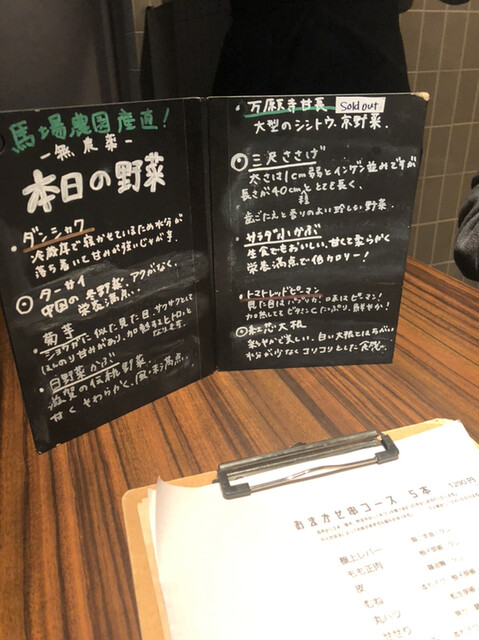 馬場農園産直！
-無農薬-
本日の野菜
・ダンシャク
冷蔵庫で寝かせているため水分が
落ち着いて甘みが強いじゃが芋。
◎ターサイ
中国の冬野菜。アクがなく、
栄養満点。
・菊芋
ショウガに似た見た目。サクサクして
ほんのり甘みがあり、加熱するとトロっと
なります。
・日野菜かぶ
滋賀の伝統野菜
甘くやわらかく、風味満点。
・万願寺甘長 Sold out
大型のシシトウ。京野菜。
◎三尺ささげ
太さは1cm弱とインゲン並みですが
長さが40cmととても長く、
歯ごたえと香りのよい珍しい野菜。
種
・サラダ小かぶ
生食でもおいしい。甘くて柔らかく
栄養満点で低カロリー！
・トマトレッドピーマン
見た目はパプリカ。味はピーマン！
加熱してもビタミンCたっぷり。鮮やか！
◎紅芯大根
鮮やかで美しい。白い大根とはちがい
水分が少なくコリコリとした食感。
おまかせ串コース 5本 1290円
極上レバー
もも正肉
皮
むね
丸ハツ
せせり